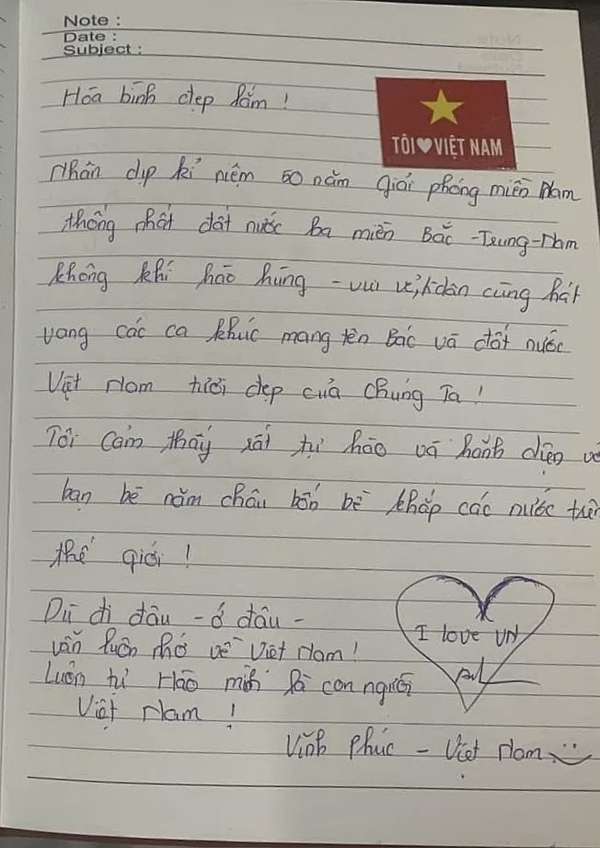 Note :
Date :
Subject :
Hòa bình đẹp lắm !
TÔI ♥ VIỆT NAM
Nhân dịp kỉ niệm 50 năm Giải phóng miền Nam
thống nhất đất nước ba miền Bắc - Trung - Nam
không khí hào hùng - vui vẻ, cùng hát
vang các ca khúc mang tên Bác và đất nước
Việt Nam tươi đẹp của Chúng Ta !
Tôi cảm thấy rất tự hào và hãnh diện về
bạn bè năm châu bốn bể khắp các nước trên
thế giới !
Dù đi đâu - ở đâu -
vẫn luôn nhớ về Việt Nam !
Luôn tự Hào mình là con người
Việt Nam !
I love VN
Vĩnh Phúc - Việt Nam